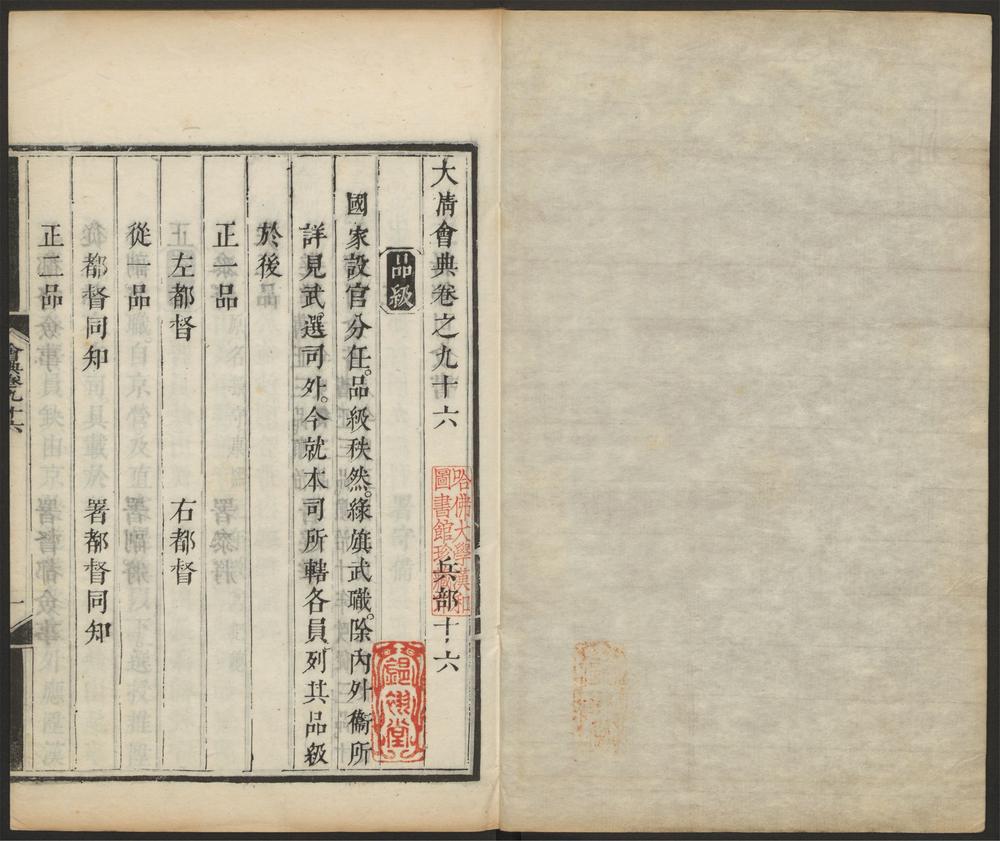 大清會典卷之九十六　兵部十六
哈佛大學漢和
圖書館珍藏
品級
國家設官分任。品級秩然。綠旗武職。除內外衛所
詳見武選司外。今就本司所轄各員列其品級
於後
正一品
左都督　右都督
從一品
都督同知　署都督同知
正二品
會典卷九十六
一